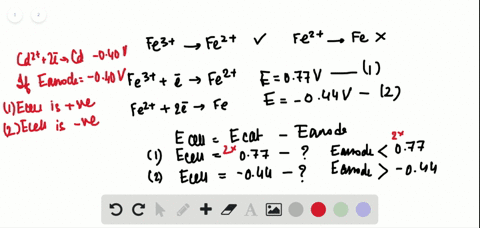 Fe³⁺ → Fe²⁺ ✓ Fe²⁺ → Fe ×
Cd²⁺+2ē→Cd -0.40V
If Eanode=-0.40V
(1) Ecell is +ve
(2) Ecell is -ve
Fe³⁺ + ē → Fe²⁺ E = 0.77V — (1)
Fe²⁺ + 2ē → Fe E = -0.44V - (2)
Ecell = Ecat - Eanode
(1) Ecell = 2x 0.77 - ? Eanode < 2x 0.77
(2) Ecell = -0.44 - ? Eanode > -0.44